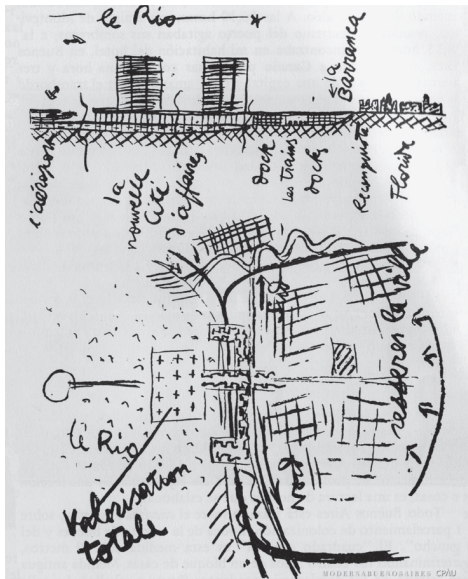 le Rio
l'aéroport
la
nouvelle
Cité
d'affaires
dock
les trains
docks
Reconquista
Florida
la
Barranca
le Rio
Valorisation
totale
Sud
Nord
resserrer la ville
MODERNABUENOSAIRES CPAU